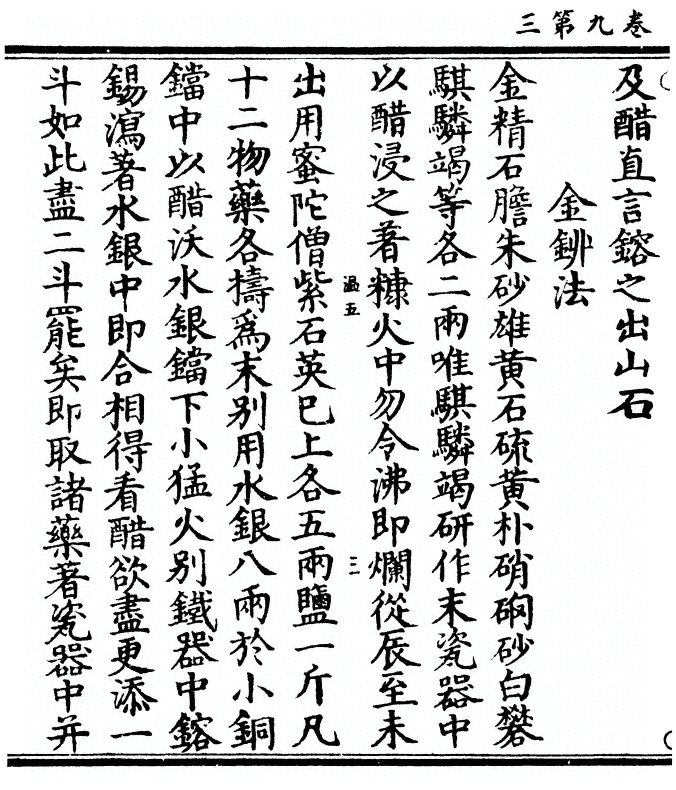 卷九第三
及醋直言鎔之出山石
金鉚法
金精石膽朱砂雄黃石硫黃朴硝硇砂白礬
騏驎竭等各二兩唯騏驎竭研作末瓷器中
以醋浸之著糠火中勿令沸即爛從辰至未
出用蜜陀僧紫石英已上各五兩鹽一斤凡
十二物藥各擣為末別用水銀八兩於小銅
鐺中以醋沃水銀鐺下小猛火別鐵器中鎔
錫瀉著水銀中即合相得看醋欲盡更添一
斗如此盡二斗罷矣即取諸藥著瓷器中并
溫五
三一